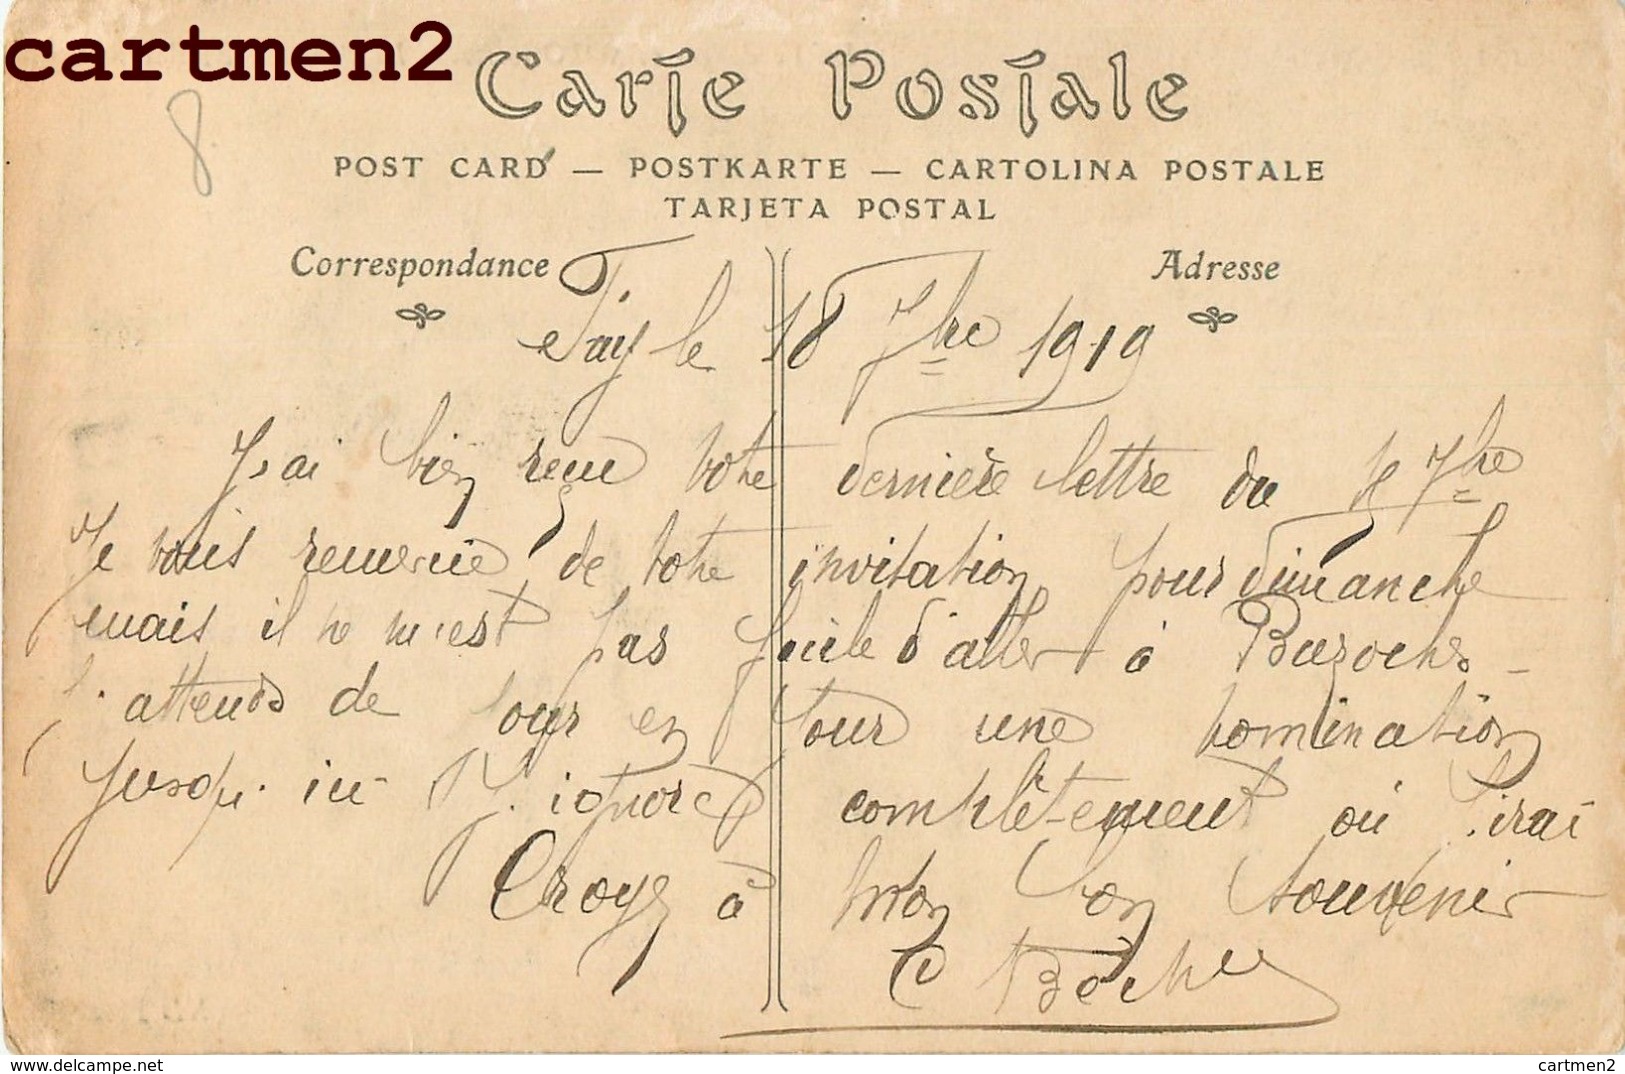 cartmen2
8
Carte Postale
POST CARD — POSTKARTE — CARTOLINA POSTALE
TARJETA POSTAL
Correspondance
Adresse
Fay le 18 7bre 1919
J'ai bien reçu votre dernière lettre du 7bre
Je vous remercie de votre invitation pour dimanche
mais il ne m'est pas facile d'aller à Bazoches
J'attends de jour en jour une nomination
jusqu'ici J'ignore complètement où j'irai
Croyez à mon bon souvenir
delcampe.net
cartmen2